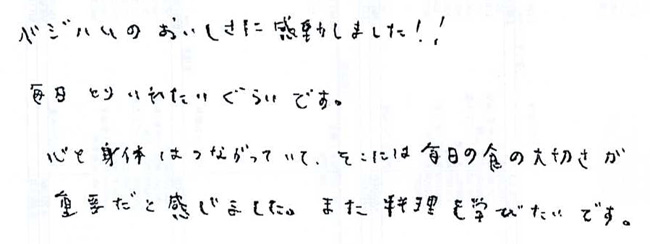 ベジハムのおいしさに感動しました!!
毎日とりいれたいぐらいです。
心と身体はつながっていて、そこには毎日の食の大切さが
重要だと感じました。また料理を学びたいです。